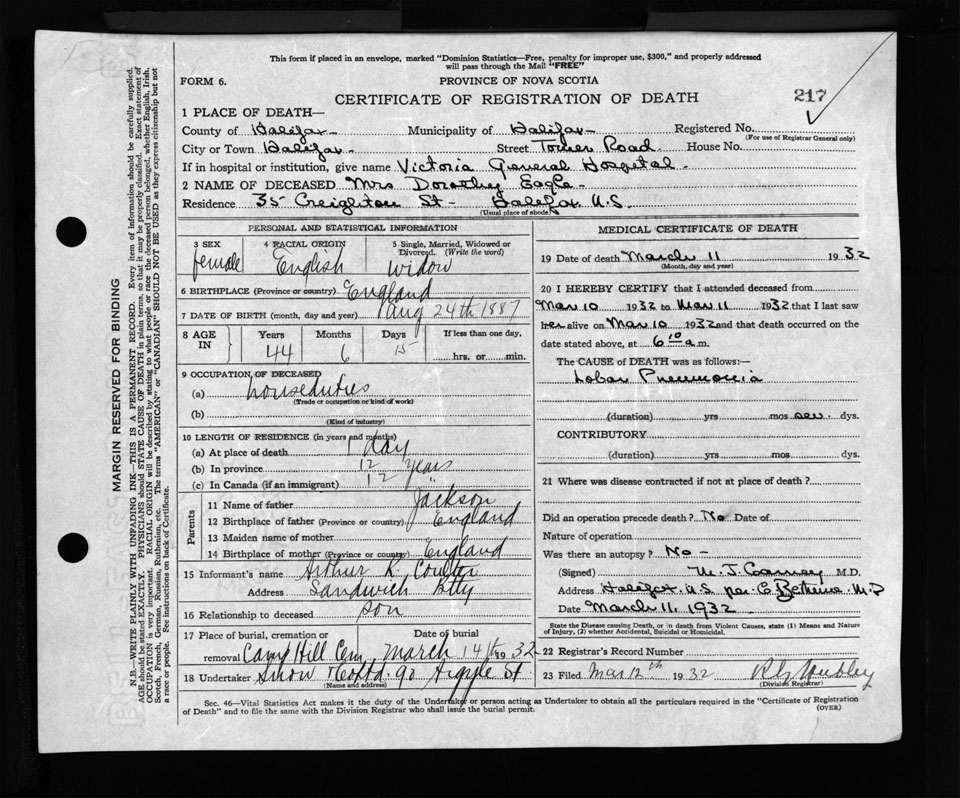 This form if placed in an envelope, marked "Dominion Statistics—Free, penalty for improper use, $300," and properly addressed
will pass through the Mail "FREE"
FORM 6.
PROVINCE OF NOVA SCOTIA
CERTIFICATE OF REGISTRATION OF DEATH
217
1 PLACE OF DEATH—
County of Halifax Municipality of Halifax Registered No.
(For use of Registrar General only)
City or Town Halifax Street Tower Road House No.
If in hospital or institution, give name Victoria General Hospital
2 NAME OF DECEASED Mrs Dorothy Eagle
Residence 35 Creighton St - Halifax N.S.
(Usual place of abode)
PERSONAL AND STATISTICAL INFORMATION
3 SEX 4 RACIAL ORIGIN 5 Single, Married, Widowed or
Divorced. (Write the word)
female English widow
6 BIRTHPLACE (Province or country) England
7 DATE OF BIRTH (month, day and year) Aug 24th 1887
8 AGE IN Years Months Days If less than one day,
44 6 15 hrs. or min.
9 OCCUPATION OF DECEASED
(a) houseduties
(Trade or occupation or kind of work)
(b)
(Kind of industry)
10 LENGTH OF RESIDENCE (in years and months)
(a) At place of death 1 day
(b) In province 12 years
(c) In Canada (if an immigrant) 12 "
Parents
11 Name of father Jackson
12 Birthplace of father (Province or country) England
13 Maiden name of mother
14 Birthplace of mother (Province or country) England
15 Informant's name Arthur K. Coulter
Address Sandwich Btty
16 Relationship to deceased son
17 Place of burial, cremation or removal Date of burial
Camp Hill Cem March 14th 1932
18 Undertaker Snow & Co Ltd. 90 Argyle St
(Name and address)
MEDICAL CERTIFICATE OF DEATH
19 Date of death March 11 1932
(Month, day and year)
20 I HEREBY CERTIFY that I attended deceased from
Mar 10 1932 to Mar 11 1932 that I last saw
her alive on Mar 10 1932 and that death occurred on
date stated above, at 6 10 a.m.
The CAUSE of DEATH was as follows:—
Lobar Pneumonia
(duration) yrs mos dys.
CONTRIBUTORY
(duration) yrs mos dys.
21 Where was disease contracted if not at place of death?
Did an operation precede death? No Date of
Nature of operation
Was there an autopsy? No -
(Signed) M.D.
Address Halifax N.S. per M.D
Date March 11, 1932
State the Disease causing Death, or in death from Violent Causes, state (1) Means and Nature
of Injury, (2) whether Accidental, Suicidal or Homicidal.
22 Registrar's Record Number
23 Filed Mar 12th 1932
(Division Registrar)
Sec. 46—Vital Statistics Act makes it the duty of the Undertaker or person acting as Undertaker to obtain all the particulars required in the "Certificate of Registration
of Death" and to file the same with the Division Registrar who shall issue the burial permit.
(OVER)
MARGIN RESERVED FOR BINDING
N.B.—WRITE PLAINLY WITH UNFADING INK—THIS IS A PERMANENT RECORD. Every item of information should be carefully supplied.
AGE should be stated EXACTLY. PHYSICIANS should STATE CAUSE OF DEATH in plain terms, so that it may be properly classified. Exact statement of
OCCUPATION is very important. RACIAL ORIGIN will be described by stating to what people or race the deceased person belonged, whether English, Irish,
Scotch, French, German, Russian, Ruthenian, etc. The terms "AMERICAN" or "CANADIAN" SHOULD NOT BE USED as they express citizenship but not
a race or people. See instructions on back of Certificate.